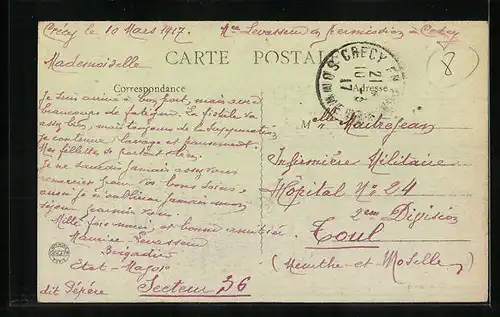 Crécy le 10 Mars 1917.
Mce Levasseur en permission à Crécy
CARTE POSTALE
8
Mademoiselle
Correspondance
Adresse
CRECY EN
SOMME
21
10-3
17
Je suis arrivé à bon port, mais avec
beaucoup de fatigue. La fistule va
assez bien, mais toujours de la suppuration
je continue lavage et pansement.
Mes fillettes se portent bien.
Je ne saurai jamais assez vous
remercier pour vos bons soins,
aussi je n'oublierai jamais mon
séjour parmi vous.
Mille fois merci, et bonne amitiée
Maurice Levasseur
Brigadier
Etat-Major
dit Pépère Secteur 36
Melle Maitrejean
Infirmière Militaire
Hôpital No 24
2em Division
Toul
(Meurthe et Moselle)